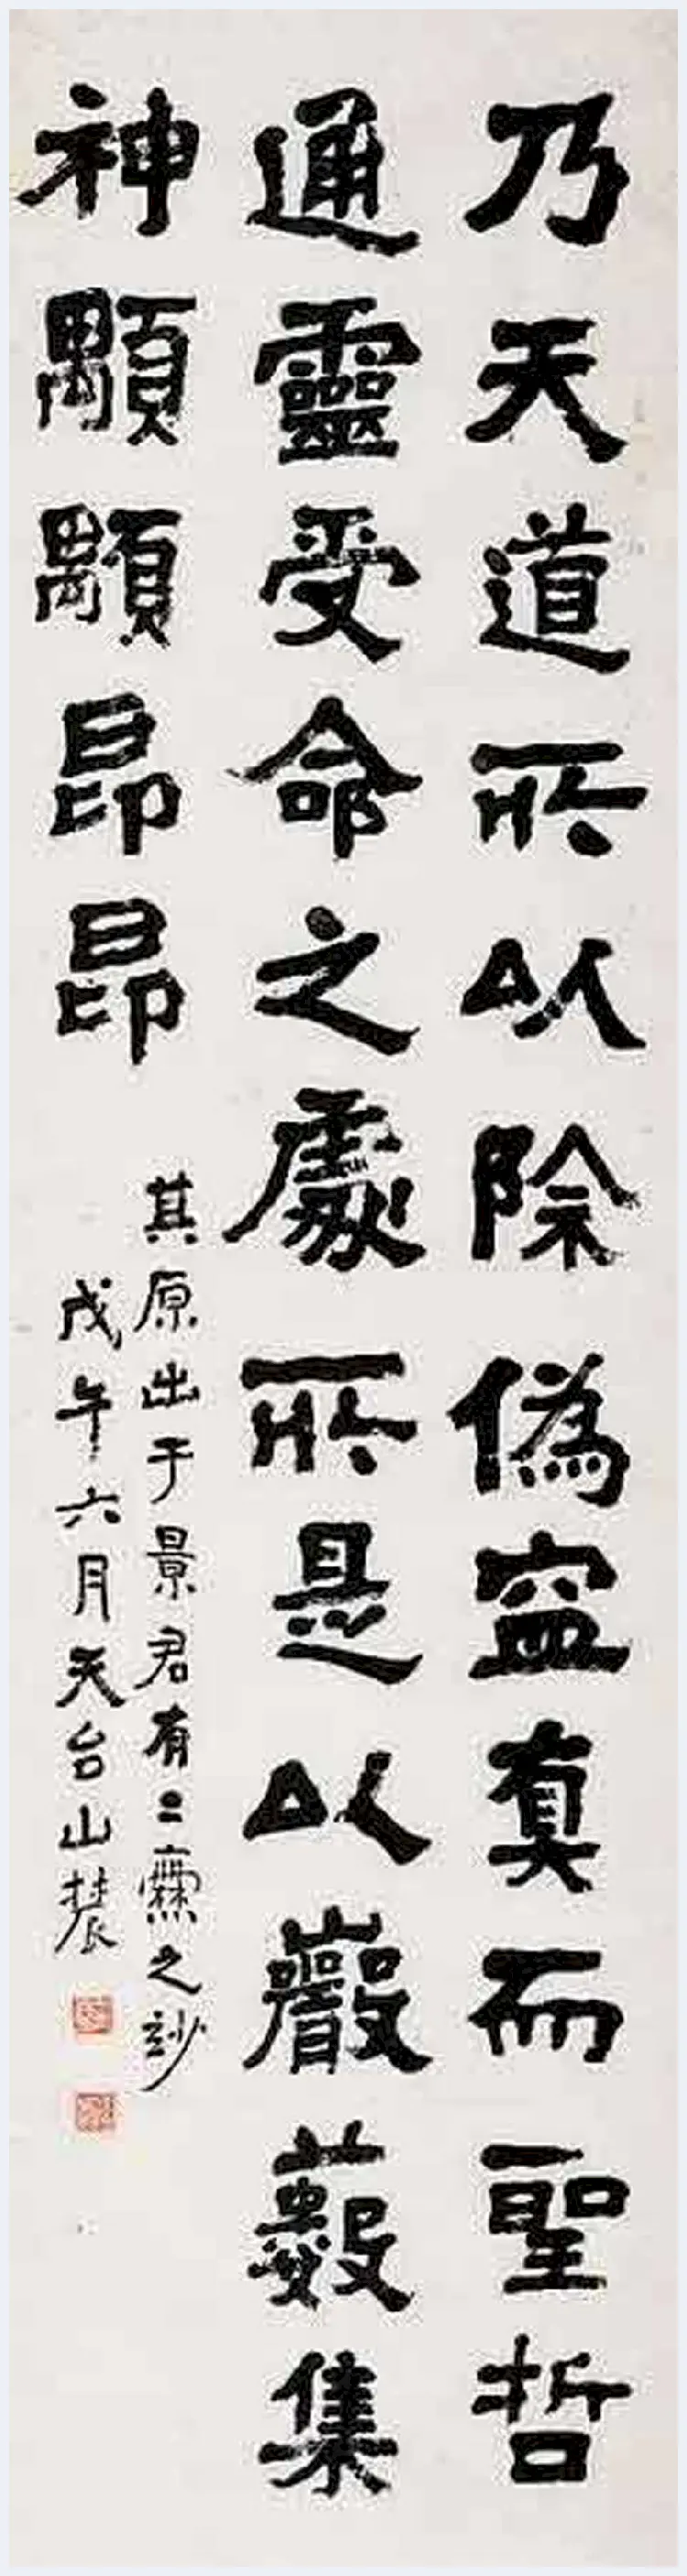 乃天道所以除偽寍真而聖哲
通靈受命之處所是以巖藪集
神顒顒昂昂
其原出于景君有二爨之妙
戊午六月天台山農